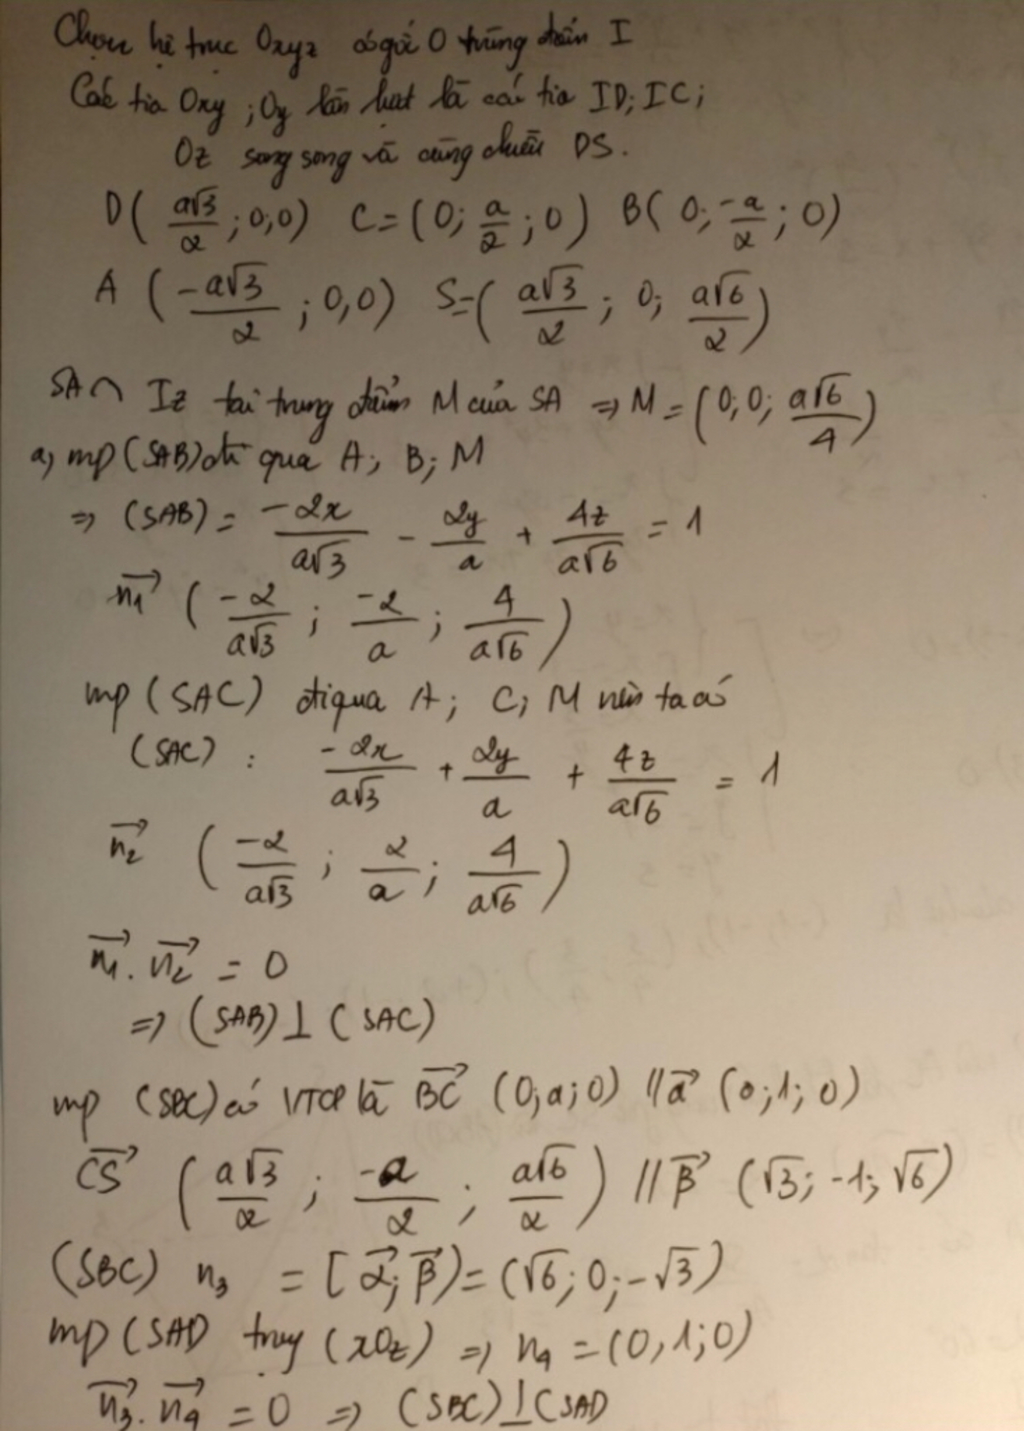 Chọn hệ trục Oxyz có gốc O trùng điểm I
Các tia Oxy ; Oy lần lượt là các tia ID; IC;
Oz song song và cùng chiều DS.
D( a√3/2 ; 0,0) C = (0; a/2 ; 0) B( 0; -a/2 ; 0)
A ( -a√3/2 ; 0,0) S = ( a√3/2 ; 0; a√6/2 )
SA ∩ Iz tại trung điểm M của SA => M = (0; 0; a√6/4 )
a, mp (SAB) đi qua A; B; M
=> (SAB) = -2x/a√3 - 2y/a + 4z/a√6 = 1
n₁→ ( -2/a√3 ; -2/a ; 4/a√6 )
mp (SAC) đi qua A; C; M nên ta có
(SAC) : -2x/a√3 + 2y/a + 4z/a√6 = 1
n₂→ ( -2/a√3 ; 2/a ; 4/a√6 )
n₁→ . n₂→ = 0
=> (SAB) ⊥ (SAC)
mp (SBC) có VTCP là BC→ (0; a; 0) // a→ (0; 1; 0)
CS→ ( a√3/2 ; -a/2 ; a√6/2 ) // β→ (√3; -1; √6)
(SBC) n₃ = [ α→; β→ ) = (√6; 0; -√3)
mp (SAD (xOz) => n₄ = (0, 1; 0)
n₃→ . n₄→ = 0 => (SBC) ⊥ (SAD